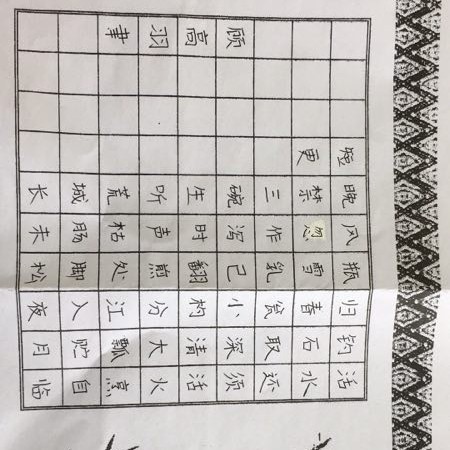 活水还须活火烹自临
钓石取深清大瓢贮月
归春瓮小杓分江入夜
瓶雪乳已翻煎处脚松
风忽作泻时声枯肠未
易禁三碗坐听荒城长
短更
顾高羽书